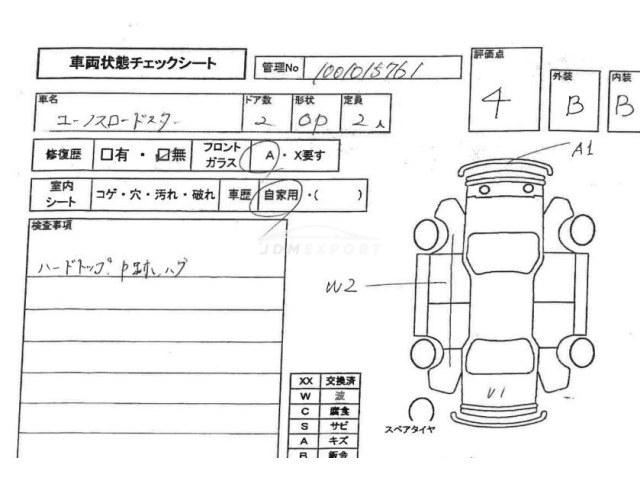 車両状態チェックシート 管理No 1001015761 評価点 4 外装 B 内装 B
車名 ユーノスロードスター ドア数 2 形状 OP 定員 2人
修復歴 □有・☑無 フロントガラス A・X要す
室内シート コゲ・穴・汚れ・破れ 車歴 自家用・( )
検査事項
JDMEXPORT
ハードトップ
A1
W2
U1
スペアタイヤ
XX 交換済
W 波
C 腐食
S サビ
A キズ
B 鈑金